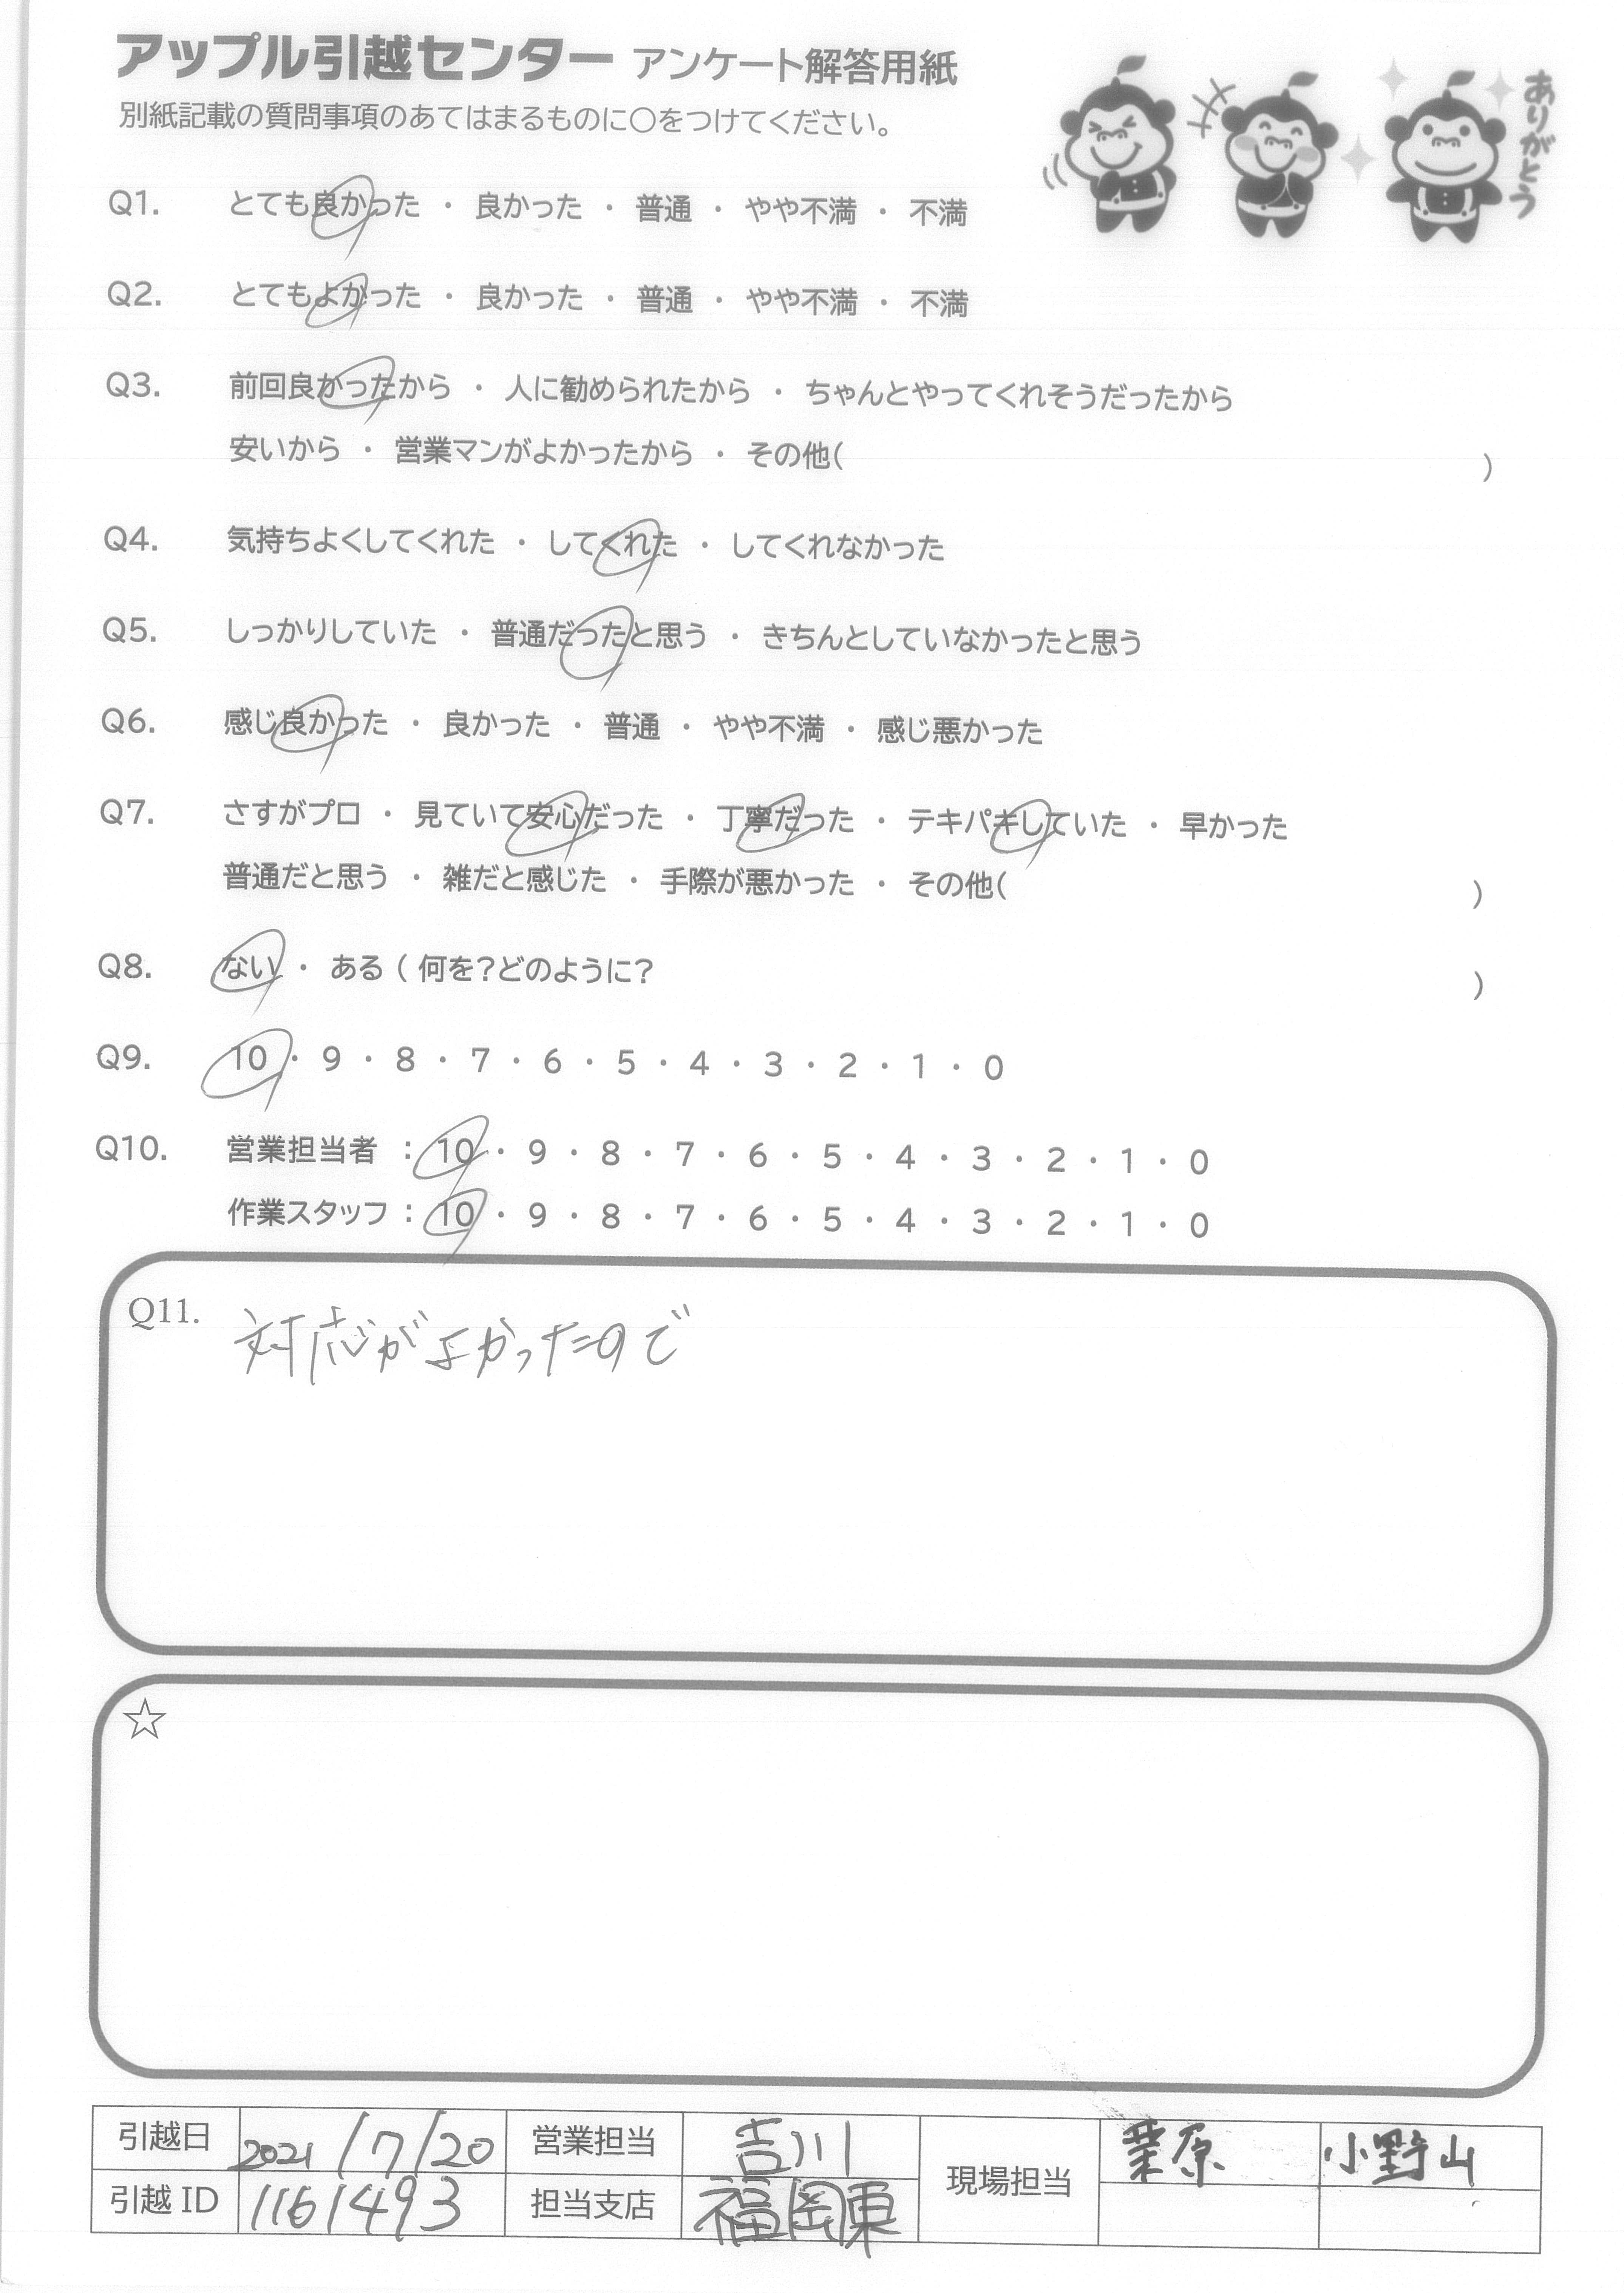 アップル引越センター アンケート解答用紙
別紙記載の質問事項のあてはまるものに○をつけてください。
ありがとう
Q1. とても良かった ・ 良かった ・ 普通 ・ やや不満 ・ 不満
Q2. とてもよかった ・ 良かった ・ 普通 ・ やや不満 ・ 不満
Q3. 前回良かったから ・ 人に勧められたから ・ ちゃんとやってくれそうだったから
安いから ・ 営業マンがよかったから ・ その他( )
Q4. 気持ちよくしてくれた ・ してくれた ・ してくれなかった
Q5. しっかりしていた ・ 普通だったと思う ・ きちんとしていなかったと思う
Q6. 感じ良かった ・ 良かった ・ 普通 ・ やや不満 ・ 感じ悪かった
Q7. さすがプロ ・ 見ていて安心だった ・ 丁寧だった ・ テキパキしていた ・ 早かった
普通だと思う ・ 雑だと感じた ・ 手際が悪かった ・ その他( )
Q8. ない ・ ある ( 何を?どのように? )
Q9. 10 ・ 9 ・ 8 ・ 7 ・ 6 ・ 5 ・ 4 ・ 3 ・ 2 ・ 1 ・ 0
Q10. 営業担当者 : 10 ・ 9 ・ 8 ・ 7 ・ 6 ・ 5 ・ 4 ・ 3 ・ 2 ・ 1 ・ 0
作業スタッフ : 10 ・ 9 ・ 8 ・ 7 ・ 6 ・ 5 ・ 4 ・ 3 ・ 2 ・ 1 ・ 0
Q11. 対応がよかったので
☆
引越日 2021/7/20 営業担当 吉川 現場担当 栗原 小野山
引越 ID 1161493 担当支店 福岡東